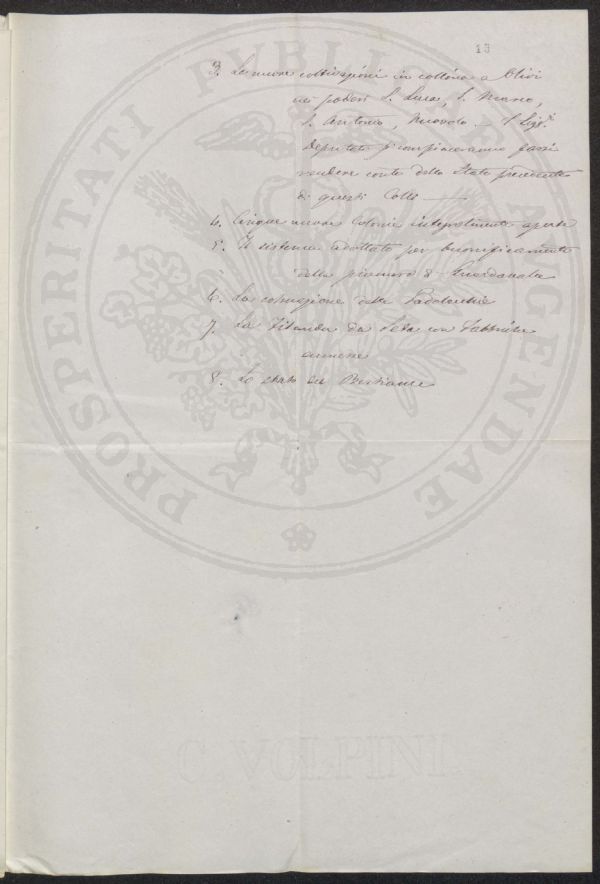 13
3. Le nuove coltivazioni in collina a Olivi
nei poderi S. Luca, S. Marco,
S. Antonio, — I Sig.ri
Deputati si compiaceranno farsi
rendere conto dello Stato precedente
di questi Colli —
4. Cinque nuove Colonie integralmente aperte
5. Il sistema adottato per bonificamento
della pianura di
6. La costruzione delle
7. La Filanda da Seta con Fabbriche
annesse
8. Lo stato del Bestiame
PROSPERITATI PVBLICAE AVGENDAE
C. VOLPINI